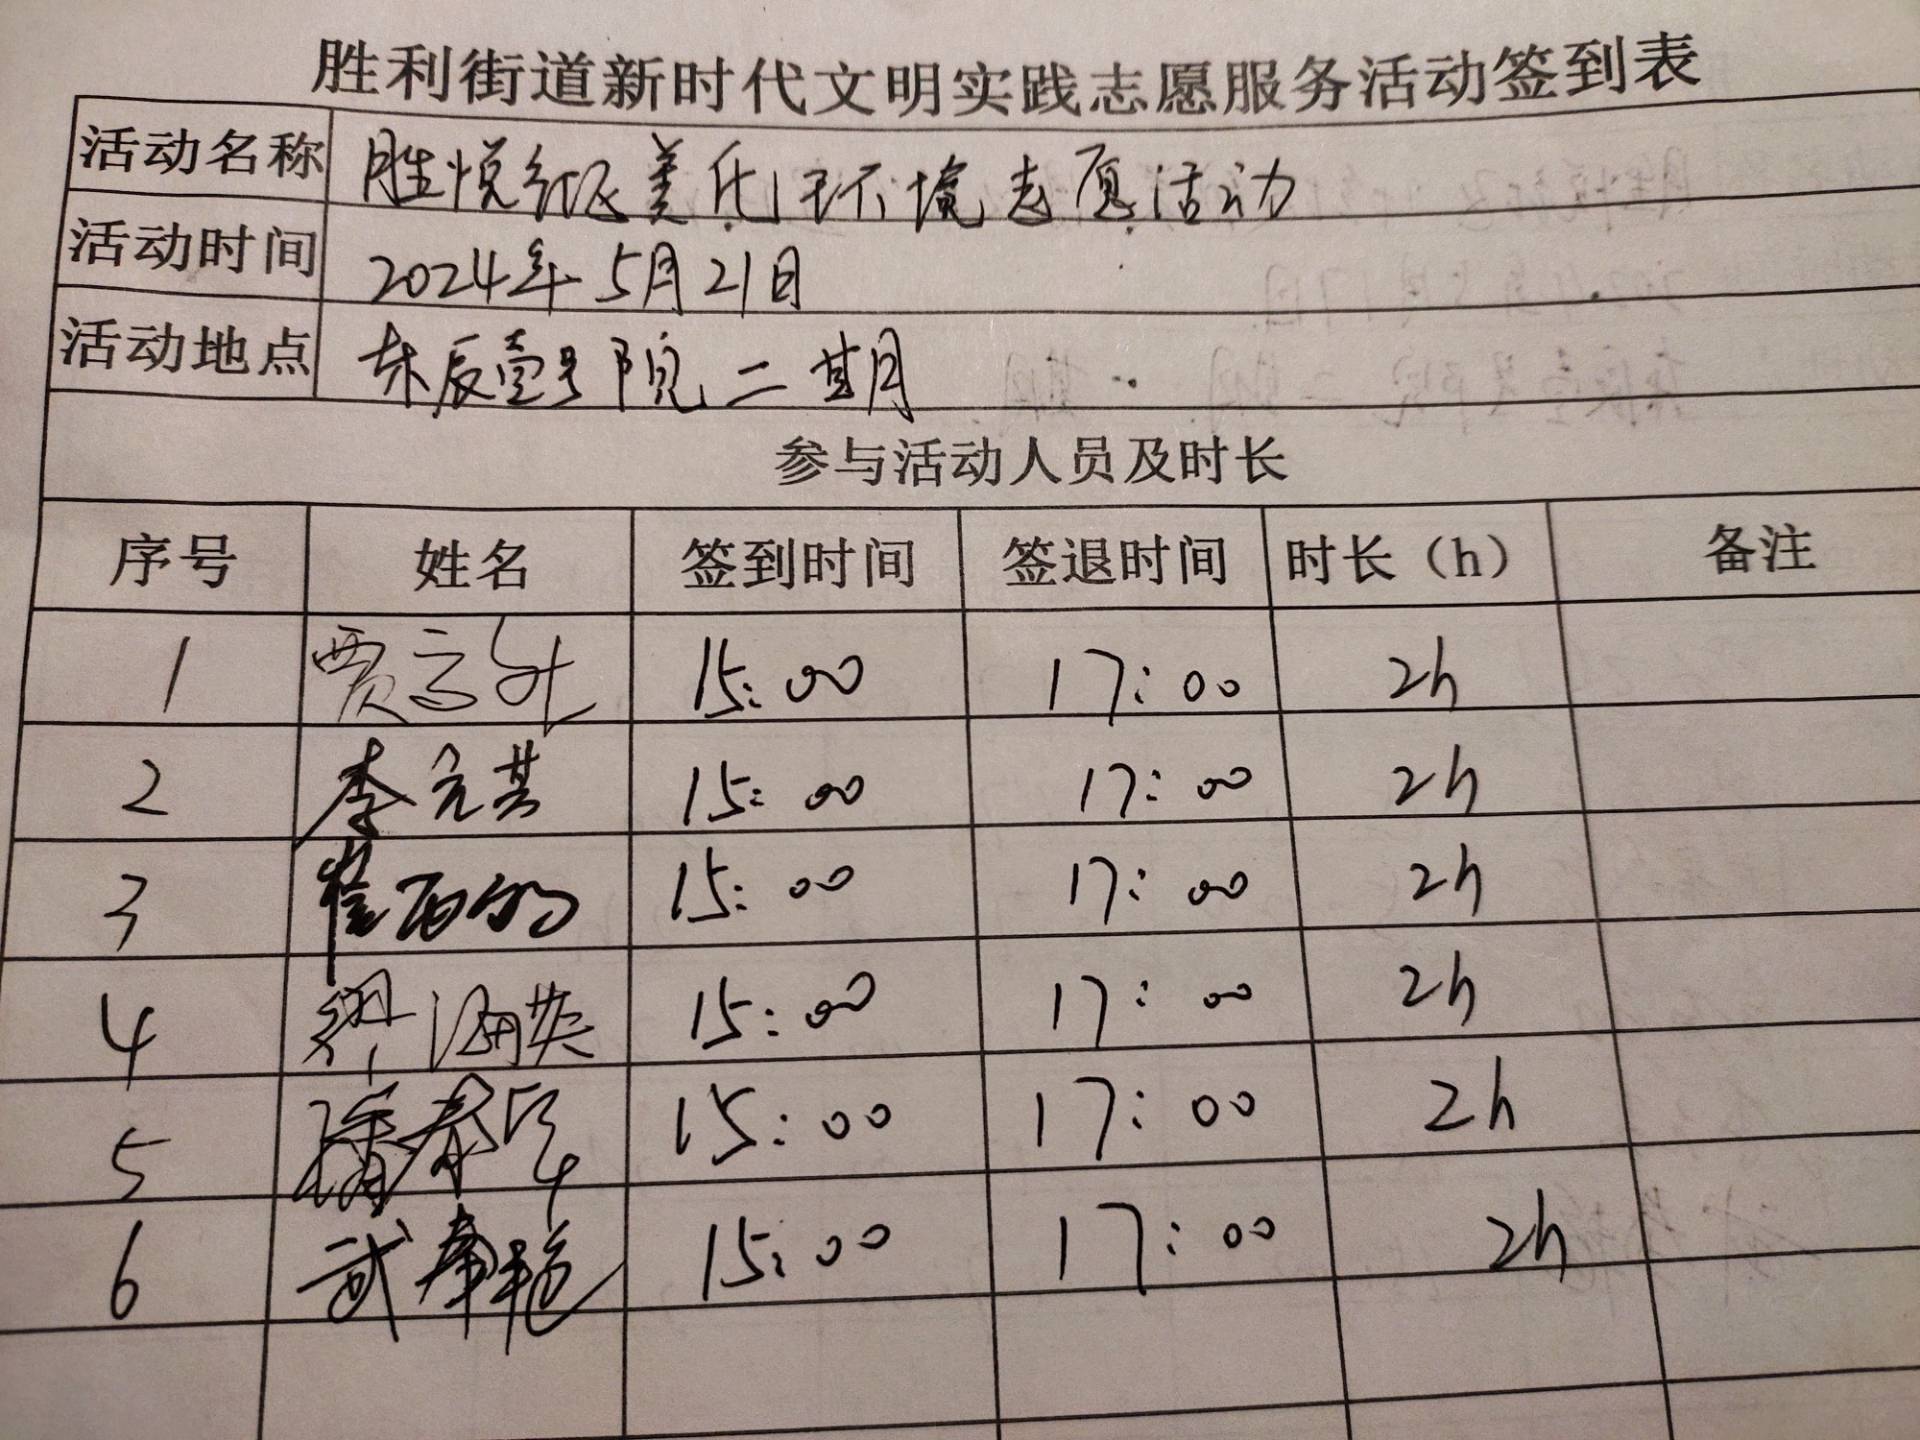 胜利街道新时代文明实践志愿服务活动签到表
活动名称 胜悦社区美化环境志愿活动
活动时间 2024年5月21日
活动地点 东辰壹号院二期
参与活动人员及时长
序号 姓名 签到时间 签退时间 时长（h） 备注
1 贾 15:00 17:00 2h
2 李元其 15:00 17:00 2h
3 15:00 17:00 2h
4 海英 15:00 17:00 2h
5 潘春 15:00 17:00 2h
6 武春艳 15:00 17:00 2h